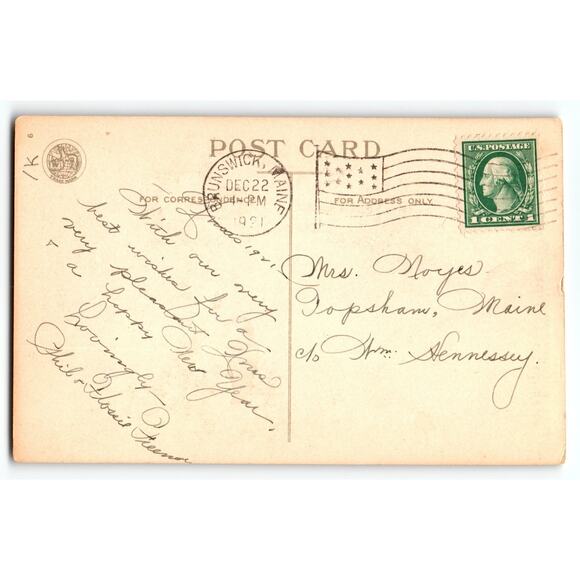 POST CARD
BRUNSWICK, MAINE
DEC 22
4 PM
1921
U.S. POSTAGE
1 CENT 1
FOR CORRESPONDENCE
FOR ADDRESS ONLY
1K
6
Xmas 1921.
With our very
best wishes for a
very pleasant Xmas
& a happy New Year,
Lovingly
Phil & Flossie
Mrs. Noyes
Topsham, Maine
c/o Wm. Hennessey.